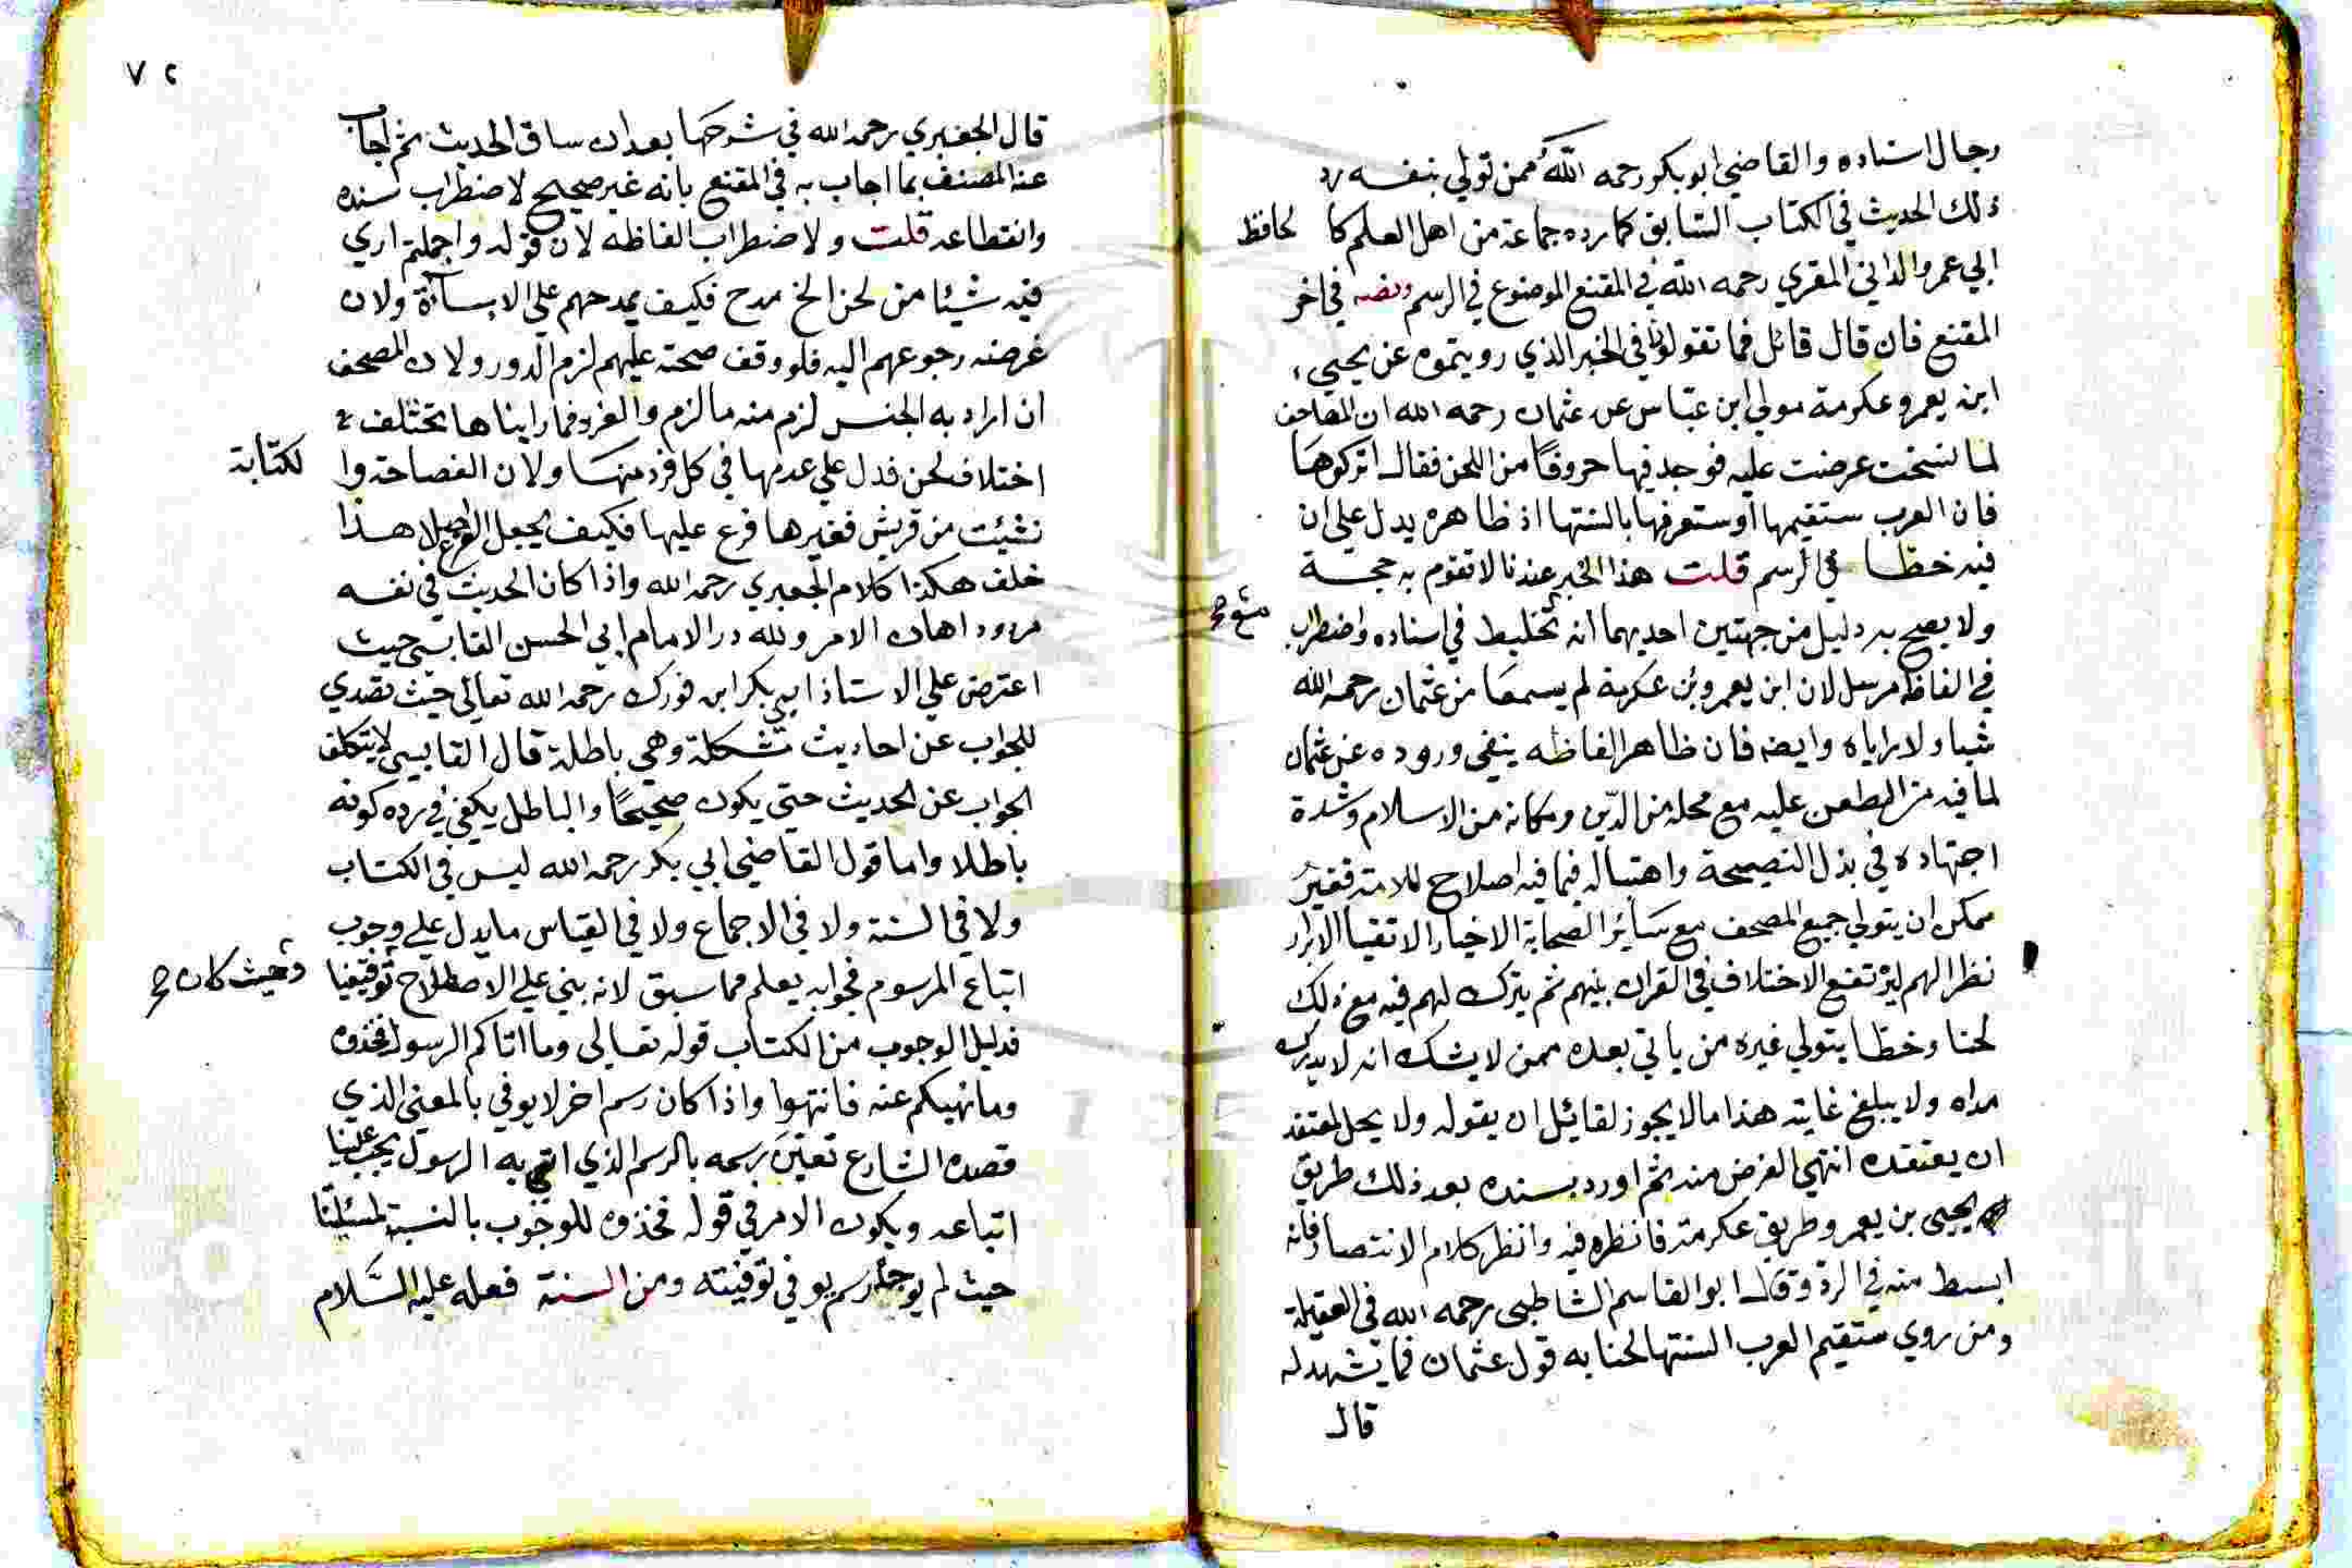 رجال اسناده والقاضي ابو بكر رحمه الله ممن تولي بنفسه رد
ذلك الحديث في الكتاب السابق كما رده جماعة من اهل العلم كا لحافظ
ابي عمرو الداني المقري رحمه الله في المقنع الموضوع في الرسم ونصه في اخر
المقنع فان قال قائل فما تقولون في الخبر الذي رويتموه عن يحيي
ابن يعمر وعكرمة مولي ابن عباس عن عثمان رحمه الله ان المصاحف
لما نسخت عرضت عليه فوجد فيها حروفا من اللحن فقال اتركوها
فان العرب ستقيمها او ستعربها بالسنتها اذ ظاهره يدل علي ان
فيه خطا في الرسم قلت هذا الخبر عندنا لا تقوم به حجة
ولا يصح به دليل من جهتين احديهما انه مع تخليط في اسناده واضطراب
في الفاظه مرسل لان ابن يعمر وعكرمة لم يسمعا من عثمان رحمه الله
شيا ولا راياه وايضه فان ظاهر الفاظه ينفي وروده عن عثمان
لما فيه من الطعن عليه مع محله من الدين ومكانه من الاسلام وشدة
اجتهاده في بذل النصيحة واهتباله فيما فيه اصلاح للامة فغير
ممكن ان يتولي جميع المصحف مع سائر الصحابة الاخيار الاتقيا الابرار
نظرا لهم ليرتفع الاختلاف في القران بينهم ثم يترك لهم فيه مع ذلك
لحنا وخطا يتولي غيره من ياتي بعده ممن لا يشك انه لا يدرك
مداه ولا يبلغ غايته هذا ما لا يجوز لقائل ان يقوله ولا يحل لمعتقد
ان يعتقده انتهي الغرض منه ثم اورد بسنده بعد ذلك طريق
يحيي بن يعمر وطريق عكرمة فانظره فيه وانظر كلام الانتصار فانه
ابسط منه في الرد وقال ابو القاسم الشاطبي رحمه الله في العقيلة
ومن روي ستقيم العرب السنتها لحنا به قول عثمان فما شهد له
قال
٧٢
قال الجعبري رحمه الله في شرحها بعد ان ساق الحديث ثم اجاب
عنه المصنف بما اجاب به في المقنع بانه غير صحيح لاضطراب سنده
وانقطاعه قلت ولاضطراب الفاظه لان قوله واجملتم اري
فيه شيئا من لحن الخ مدح فكيف يمدحهم علي الاساءة ولان
غرضه رجوعهم اليه فلو وقف صحته عليهم لزم الدور ولان المصحف
ان اراد به الجنس لزم منه ما لزم والفرد فما رايناها تختلف
اختلاف لحن فدل علي عدمها في كل فرد منها ولان الفصاحة وا لكتابة
نشئت من قريش فغيرها فرع عليها فكيف يجعل الفرع اصلا هذا
خلف هكذا كلام الجعبري رحمه الله واذا كان الحديث في نفسه
مردودا هان الامر ولله در الامام ابي الحسن القابسي حيث
اعترض علي الاستاذ ابي بكر ابن فورك رحمه الله تعالي حيث تصدي
للجواب عن احاديث مشكلة وهي باطلة قال القابسي لا يتكلف
الجواب عن الحديث حتي يكون صحيحا والباطل يكفي في رده كونه
باطلا واما قول القاضي ابي بكر رحمه الله ليس في الكتاب
ولا في السنة ولا في الاجماع ولا في القياس ما يدل علي وجوب
اتباع المرسوم فجوابه يعلم مما سبق لانه بني علي الاصطلاح وحيث كان توقيفيا
فدليل الوجوب من الكتاب قوله تعالي وما اتاكم الرسول فخذوه
وما نهيكم عنه فانتهوا واذا كان رسم اخر لا يوفي بالمعني الذي
قصده الشارع تعين رسمه بالرسم الذي اتي به الرسول يجب علينا
اتباعه ويكون الامر في قوله فخذوه للوجوب بالنسبة لمسئلتنا
حيث لم يوجد رسم يوفي توفيته ومن السنة فعله عليه السلام